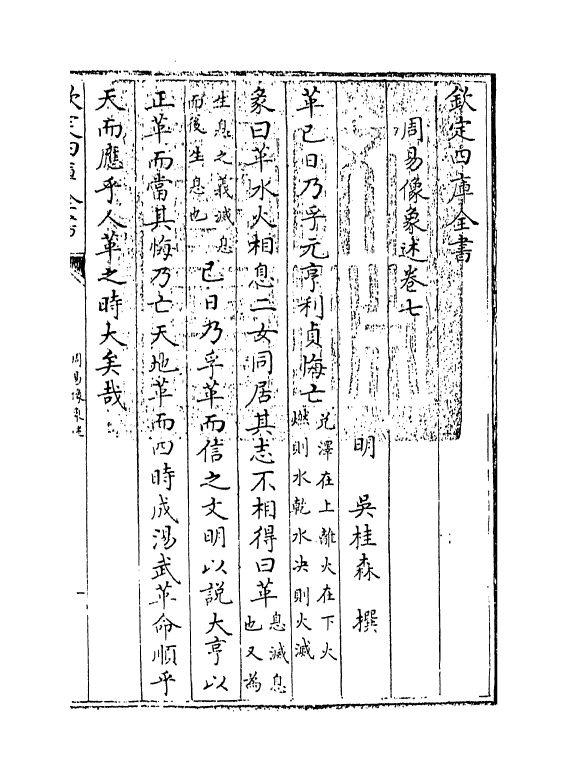 欽定四庫全書
周易像象述卷七
明 吳桂森 撰
革已日乃孚元亨利貞悔亡
兌澤在上離火在下火
燃則水乾水决則火滅
彖曰革水火相息二女同居其志不相得曰革
息滅息
也又為
生息之義滅息
而後生息也
已日乃孚革而信之文明以說大亨以
正革而當其悔乃亡天地革而四時成湯武革命順乎
天而應乎人革之時大矣哉
欽定四庫全書
周易像象述
一